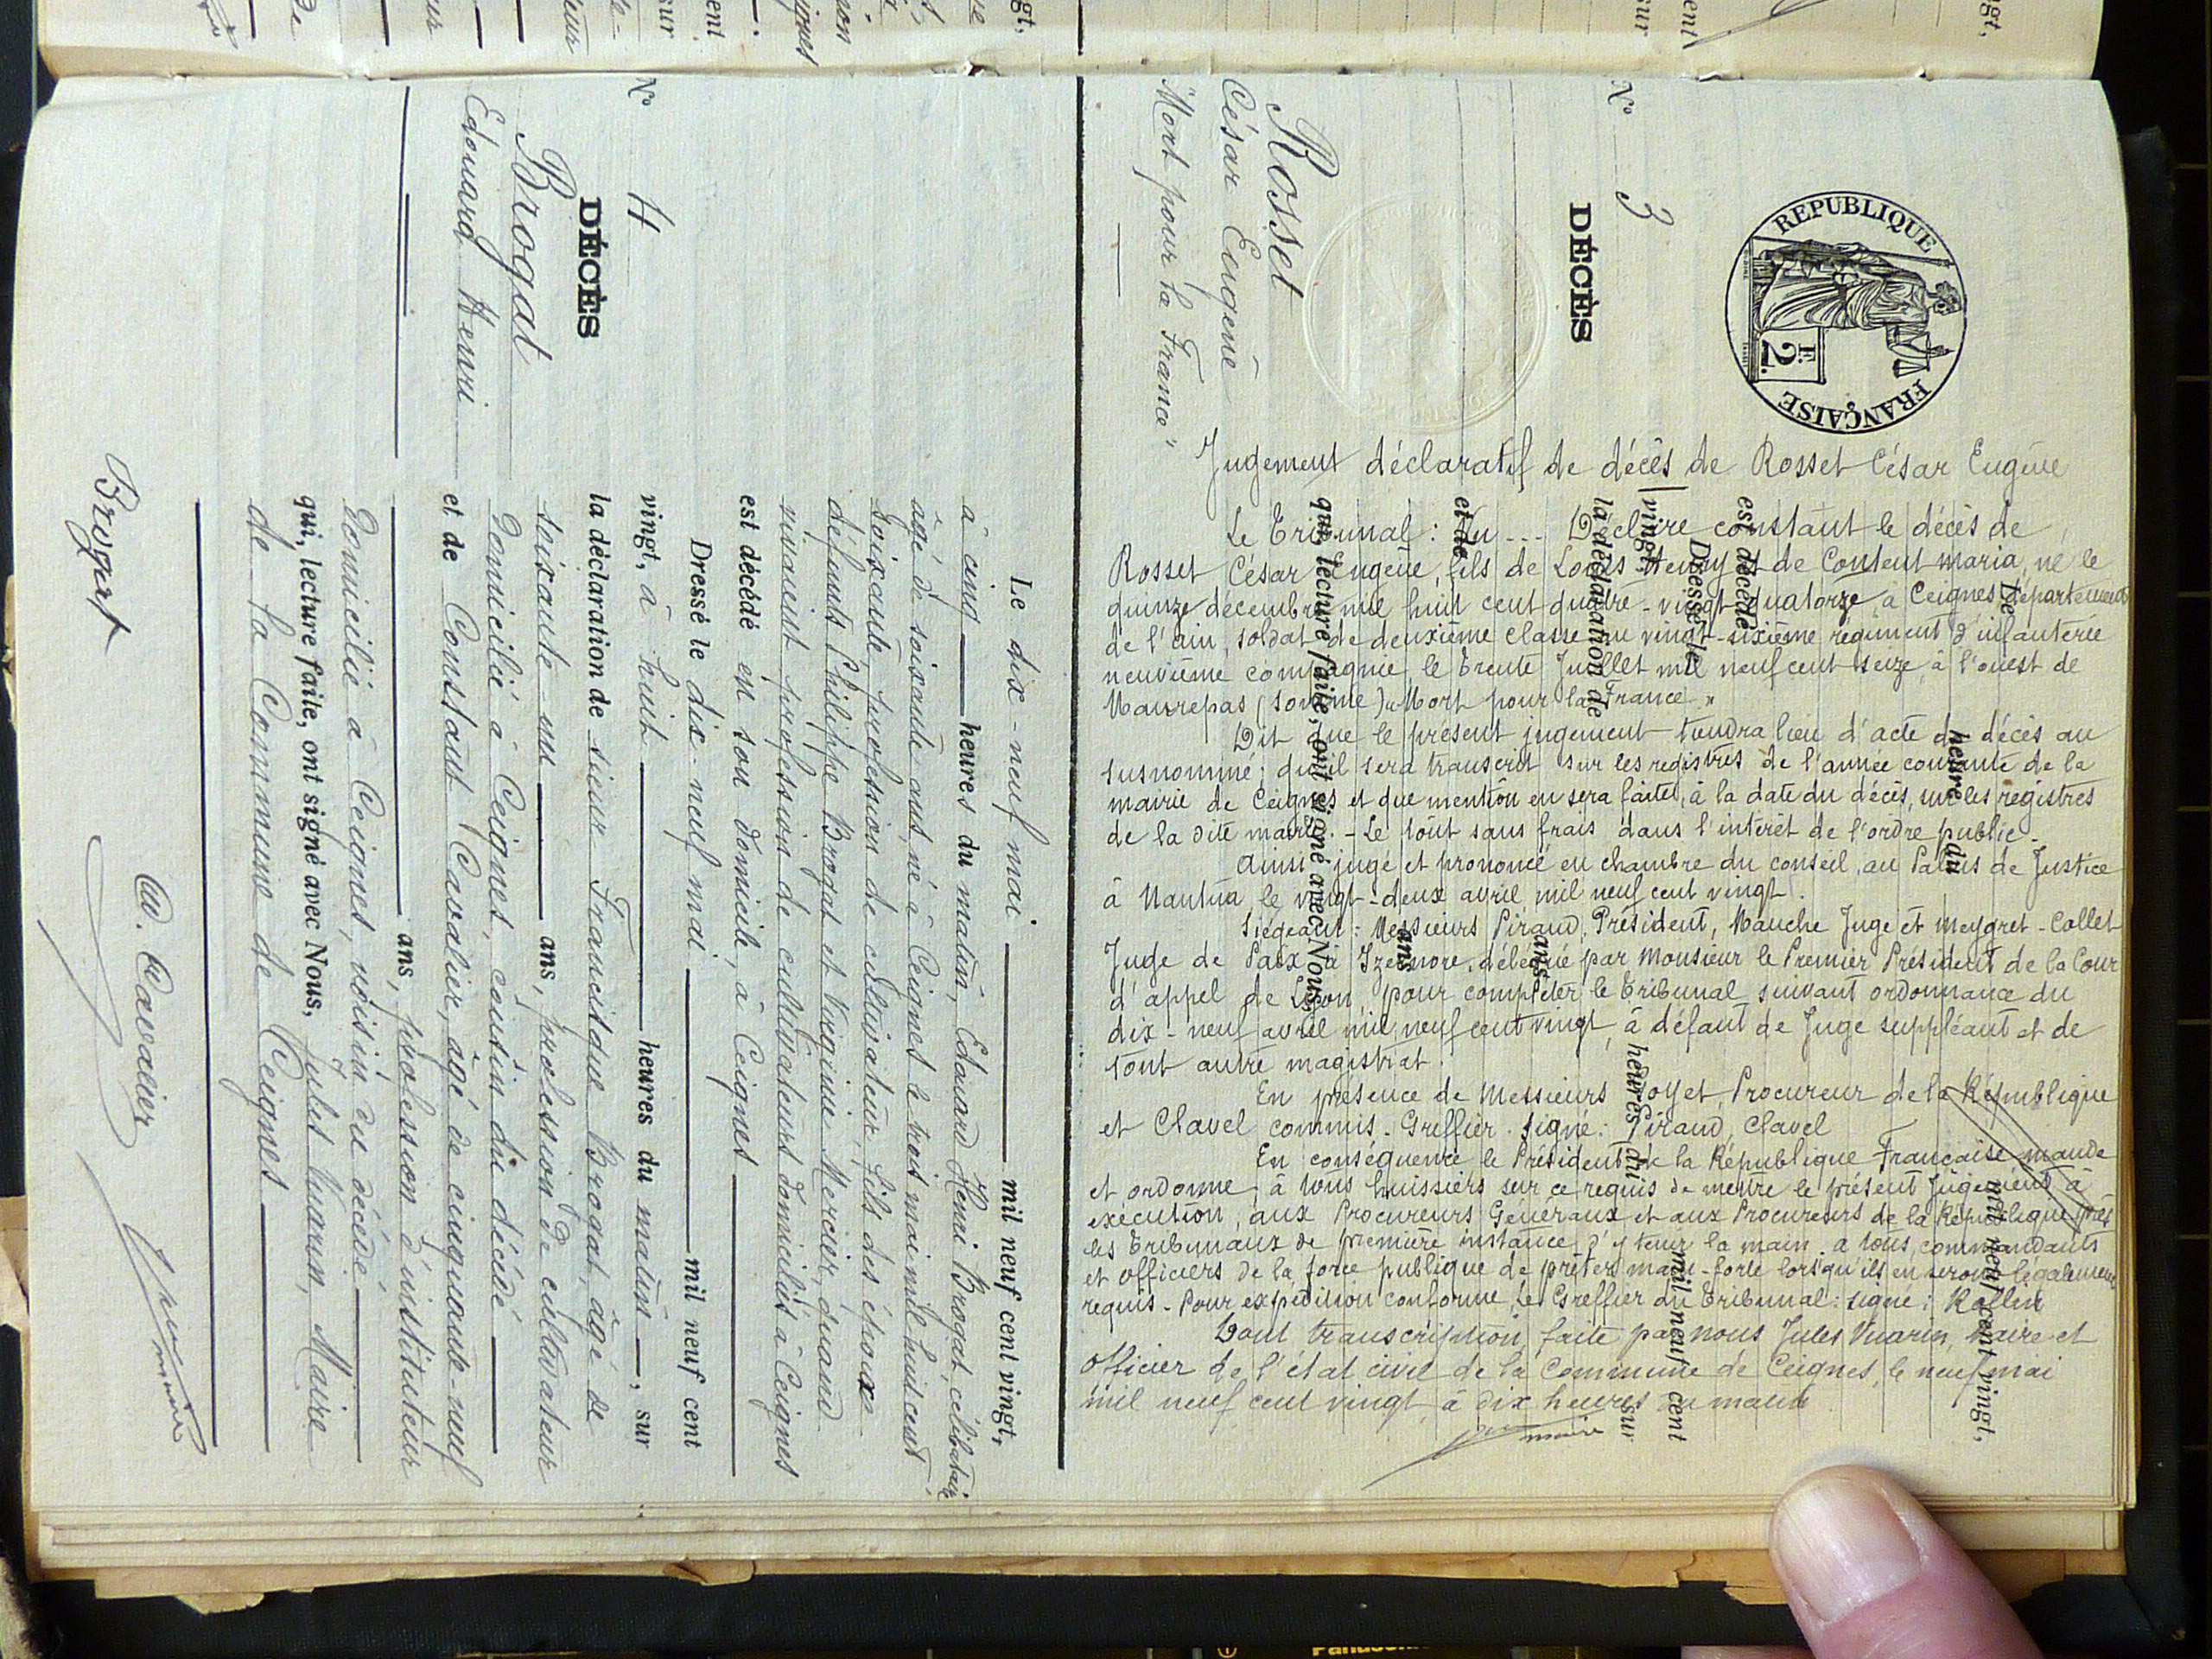 REPUBLIQUE FRANÇAISE
F. 2.
N° 3
DÉCÈS
Rosset
César Eugène
"Mort pour la France"
Jugement déclaratif de décès de Rosset César Eugène
Le Tribunal: Vu... Déclare constant le décès de
Rosset, César Eugène, fils de Louis Henry et de Content Maria, né le
quinze décembre mil huit cent quatre-vingt quatorze, à Ceignes département
de l'ain, soldat de deuxième classe au vingt-sixième régiment d'infanterie
neuvième compagnie, le trente Juillet mil neuf cent seize, à l'ouest de
Maurepas (somme) "Mort pour la France"
Dit que le présent jugement tiendra lieu d'acte de décès au
susnommé; qu'il sera transcrit sur les registres de l'année courante de la
mairie de Ceignes et que mention en sera faite, à la date du décès, sur les registres
de la dite mairie. - Le tout sans frais dans l'interêt de l'ordre public -
Ainsi jugé et prononcé en chambre du conseil, au Palais de Justice
à Nantua le vingt-deux avril mil neuf cent vingt.
Siégeant: Messieurs Piraud, Président, Mauche Juge et Meygret-Collet
Juge de Paix à Izernore, délégué par Monsieur le Premier Président de la Cour
d'appel de Lyon, pour compléter le Tribunal suivant ordonnance du
dix-neuf avril mil neuf cent vingt, à défaut de Juge suppléant et de
tout autre magistrat.
En présence de Messieurs Procureur de la République
et Clavel commis-Greffier. signé: Piraud, Clavel
En conséquence le Président de la République Française mande
et ordonne, à tous huissiers sur ce requis de mettre le présent Jugement à
exécution, aux Procureurs Généraux et aux Procureurs de la République près
les Tribunaux de première instance d'y tenir la main, à tous commandants
et officiers de la force publique de prêter main-forte lorsqu'ils en seront légalement
requis - Pour expédition conforme, le Greffier du Tribunal: signé:
Dont transcription faite par nous Jules Vuarin, Maire et
Officier de l'état civil de la Commune de Ceignes, le neuf mai
mil neuf cent vingt, à dix heures du matin
Le heure du mil neuf cent vingt,
est décédé
Dressé le mil neuf cent
vingt, heures du sur
la déclaration de
ans,
et de
ans,
qui, lecture faite, ont signé avec Nous,
N° 4
DÉCÈS
Brogat
Edouard Henri
Le dix-neuf mai mil neuf cent vingt,
à cinq heures du matin, Edouard Henri Brogat, célibataire
âgé de soixante ans, né à Ceignes le trois mai mil huit cent
soixante, profession de cultivateur, fils des époux
défunts Philippe Brogat et Virginie Mercier, quand
vivaient profession de cultivateurs domiciliés à Ceignes
est décédé en son domicile, à Ceignes
Dressé le dix-neuf mai mil neuf cent
vingt, à huit heures du matin, sur
la déclaration de sieur Francisque Brogat, âgé de
soixante-un ans, profession de cultivateur
domicilié à Ceignes, cousin du décédé
et de Constant Cavalier, âgé de cinquante-neuf
ans, profession d'instituteur
domicilié à Ceignes, voisin du décédé
qui, lecture faite, ont signé avec Nous, Jules Vuarin, Maire
de la Commune de Ceignes
Brogat
Cavalier